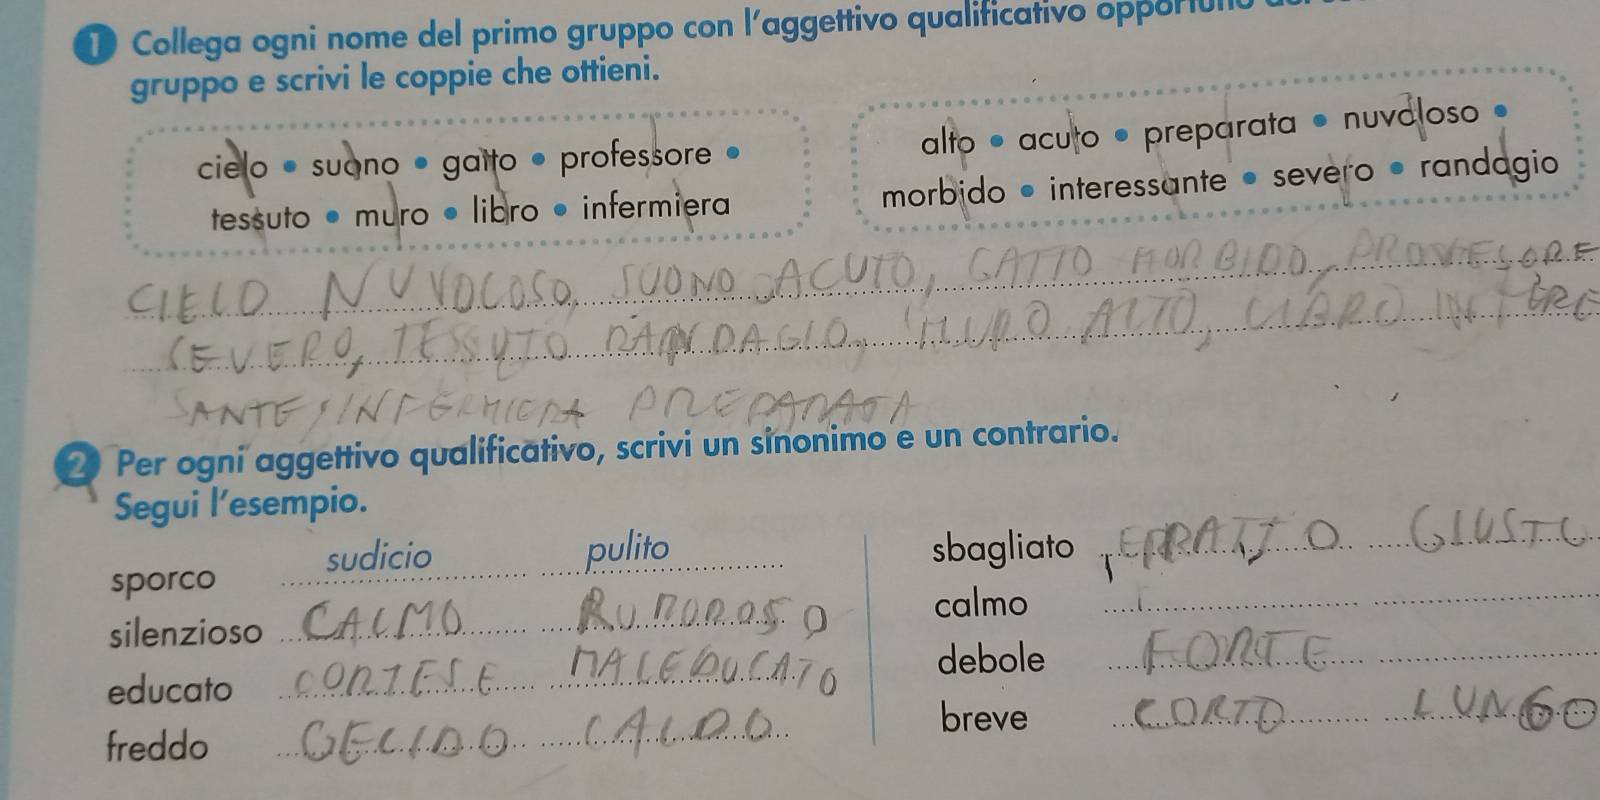 1 Collega ogni nome del primo gruppo con l'aggettivo qualificativo
gruppo e scrivi le coppie che ottieni.
cielo • suono • gatto • professore •
tessuto • muro • libro • infermiera
alto • acuto • preparata • nuvoloso •
morbido • interessante • severo • randagio
CIELO NUVOLOSO, SUONO ACUTO, GATTO MORBIDO,
SEVERO, TESSUTO RANDAGIO, MURO ALTO, LIBRO INTERE
SANTE, INFERMIERA PREPARATA
2 Per ogni aggettivo qualificativo, scrivi un sinonimo e un contrario.
Segui l'esempio.
sporco sudicio pulito
silenzioso CALMO RUMOROSO
educato CORTESE MALEDUCATO
freddo GELIDO CALDO
sbagliato ERRATTO GIUSTO
calmo
debole FORTE
breve CORTO LUNGO